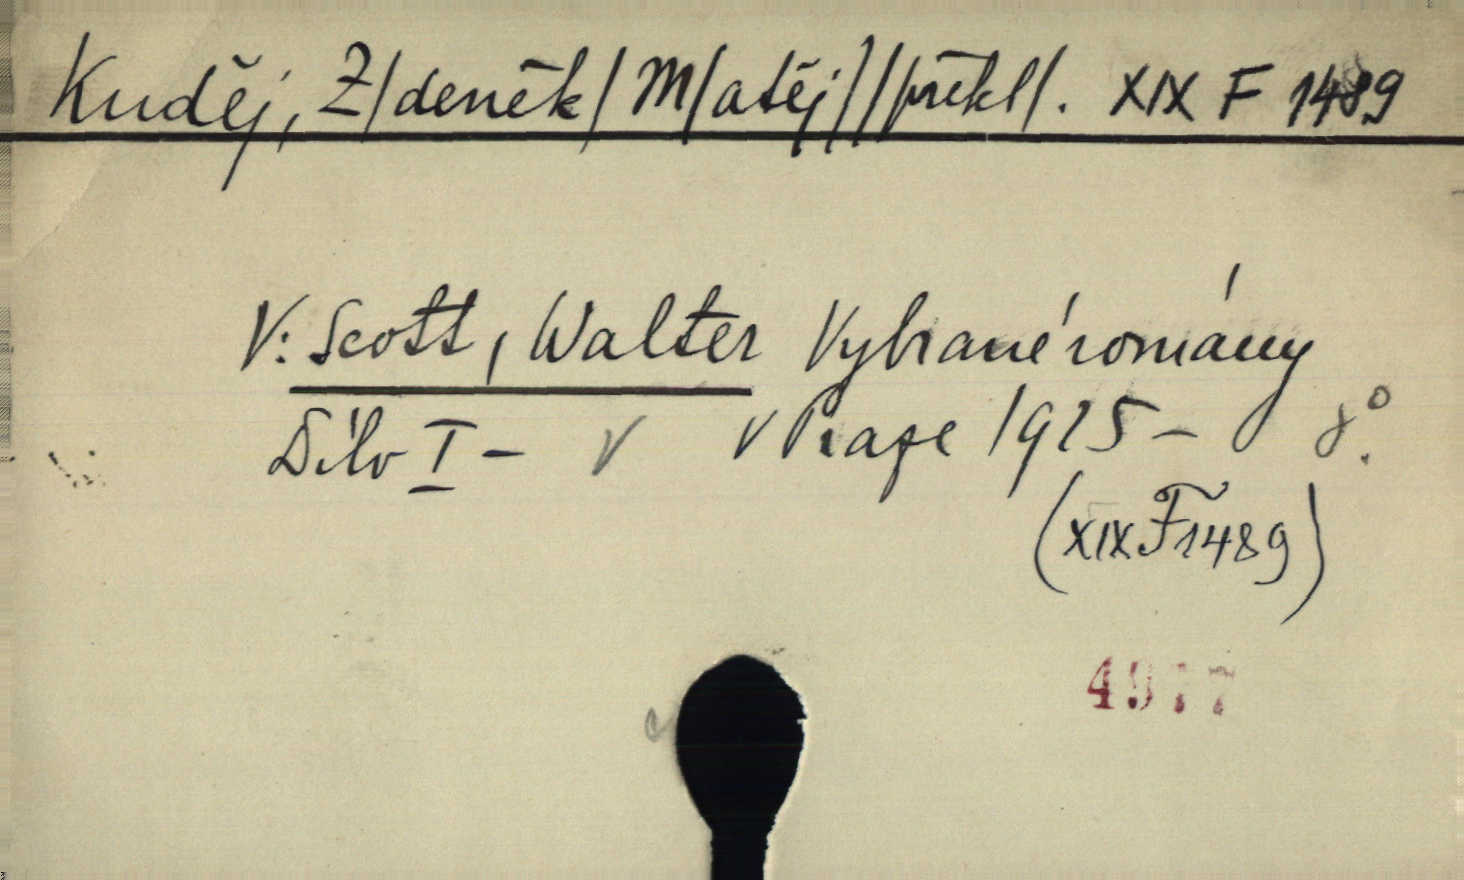 Kuděj, Z/deněk/ M/atěj//překl/. XIX F 1489
V: Scott, Walter Vybrané romány
Dílo I - V V Praze 1925 - 8°.
(XIX F 1489)
4977